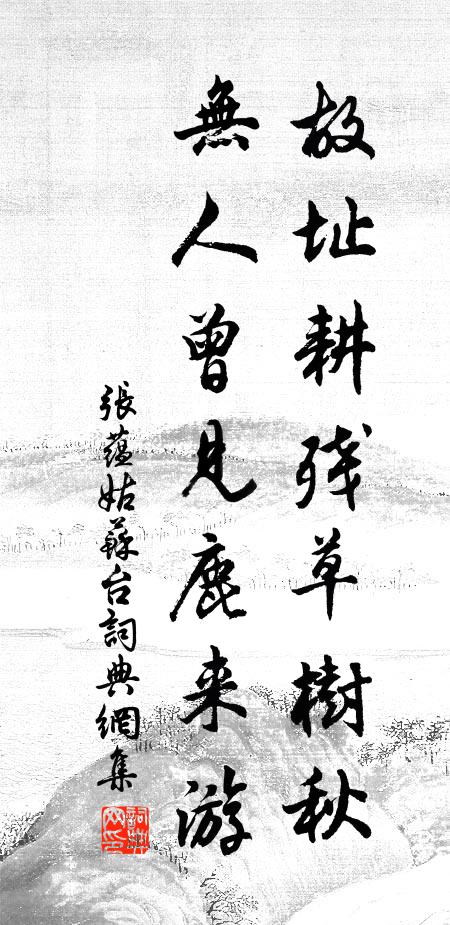 故址耕残草樹秋
無人曾見鹿来游
張蘊姑蘇台詞典網集
詞典网印